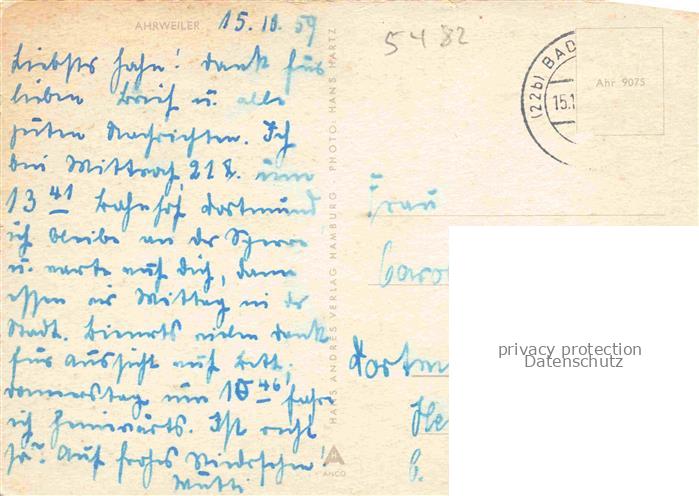 AHRWEILER 15.10.59
5482
Liebste Hahn! Dank für
lieben Brief u. alle
guten Nachrichten. Ich
bin Mittwoch, 21 um
13 41 Bahnhof Dortmund
ich bleibe an der Sperre
u. warte auf Dich, dann
essen wir Mittag in der
Stadt. vielen Dank
für Aussicht auf Bett,
Donnerstag um 10 46 fahre
ich heimwärts. Ist recht
so? Auf frohes Wiedersehen!
Mutti
HANS ANDRES VERLAG HAMBURG PHOTO: HANS HARTZ
ANCO
(22b) BAD
15.1
Ahr 9075
Frau
Dortm
privacy protection
Datenschutz